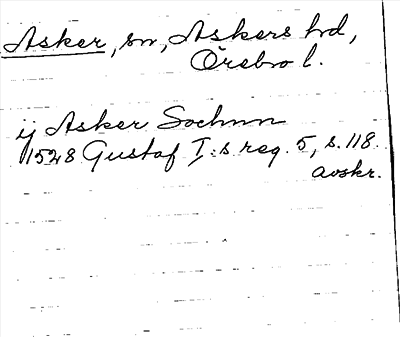 Asker, sn, Askers hd,
Örebro l.
ij Asker Sochnn
1528 Gustaf I:s reg. 5, s. 118.
avskr.